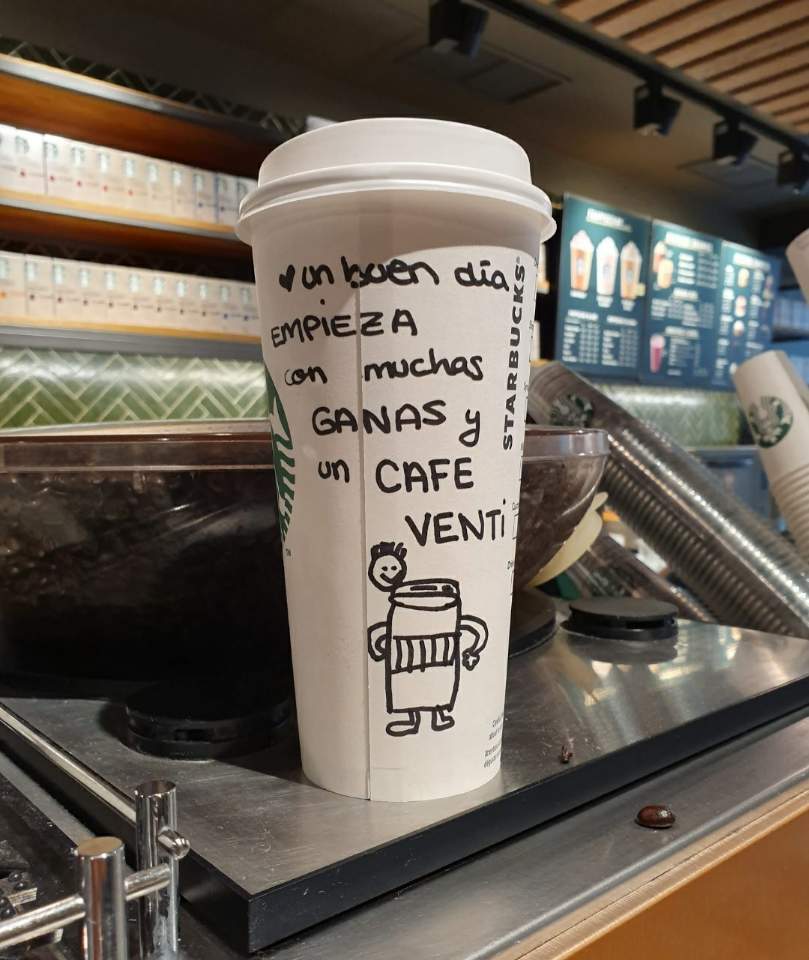 ♥ un buen día
EMPIEZA
con muchas
GANAS y
un CAFE
VENTi
STARBUCKS®